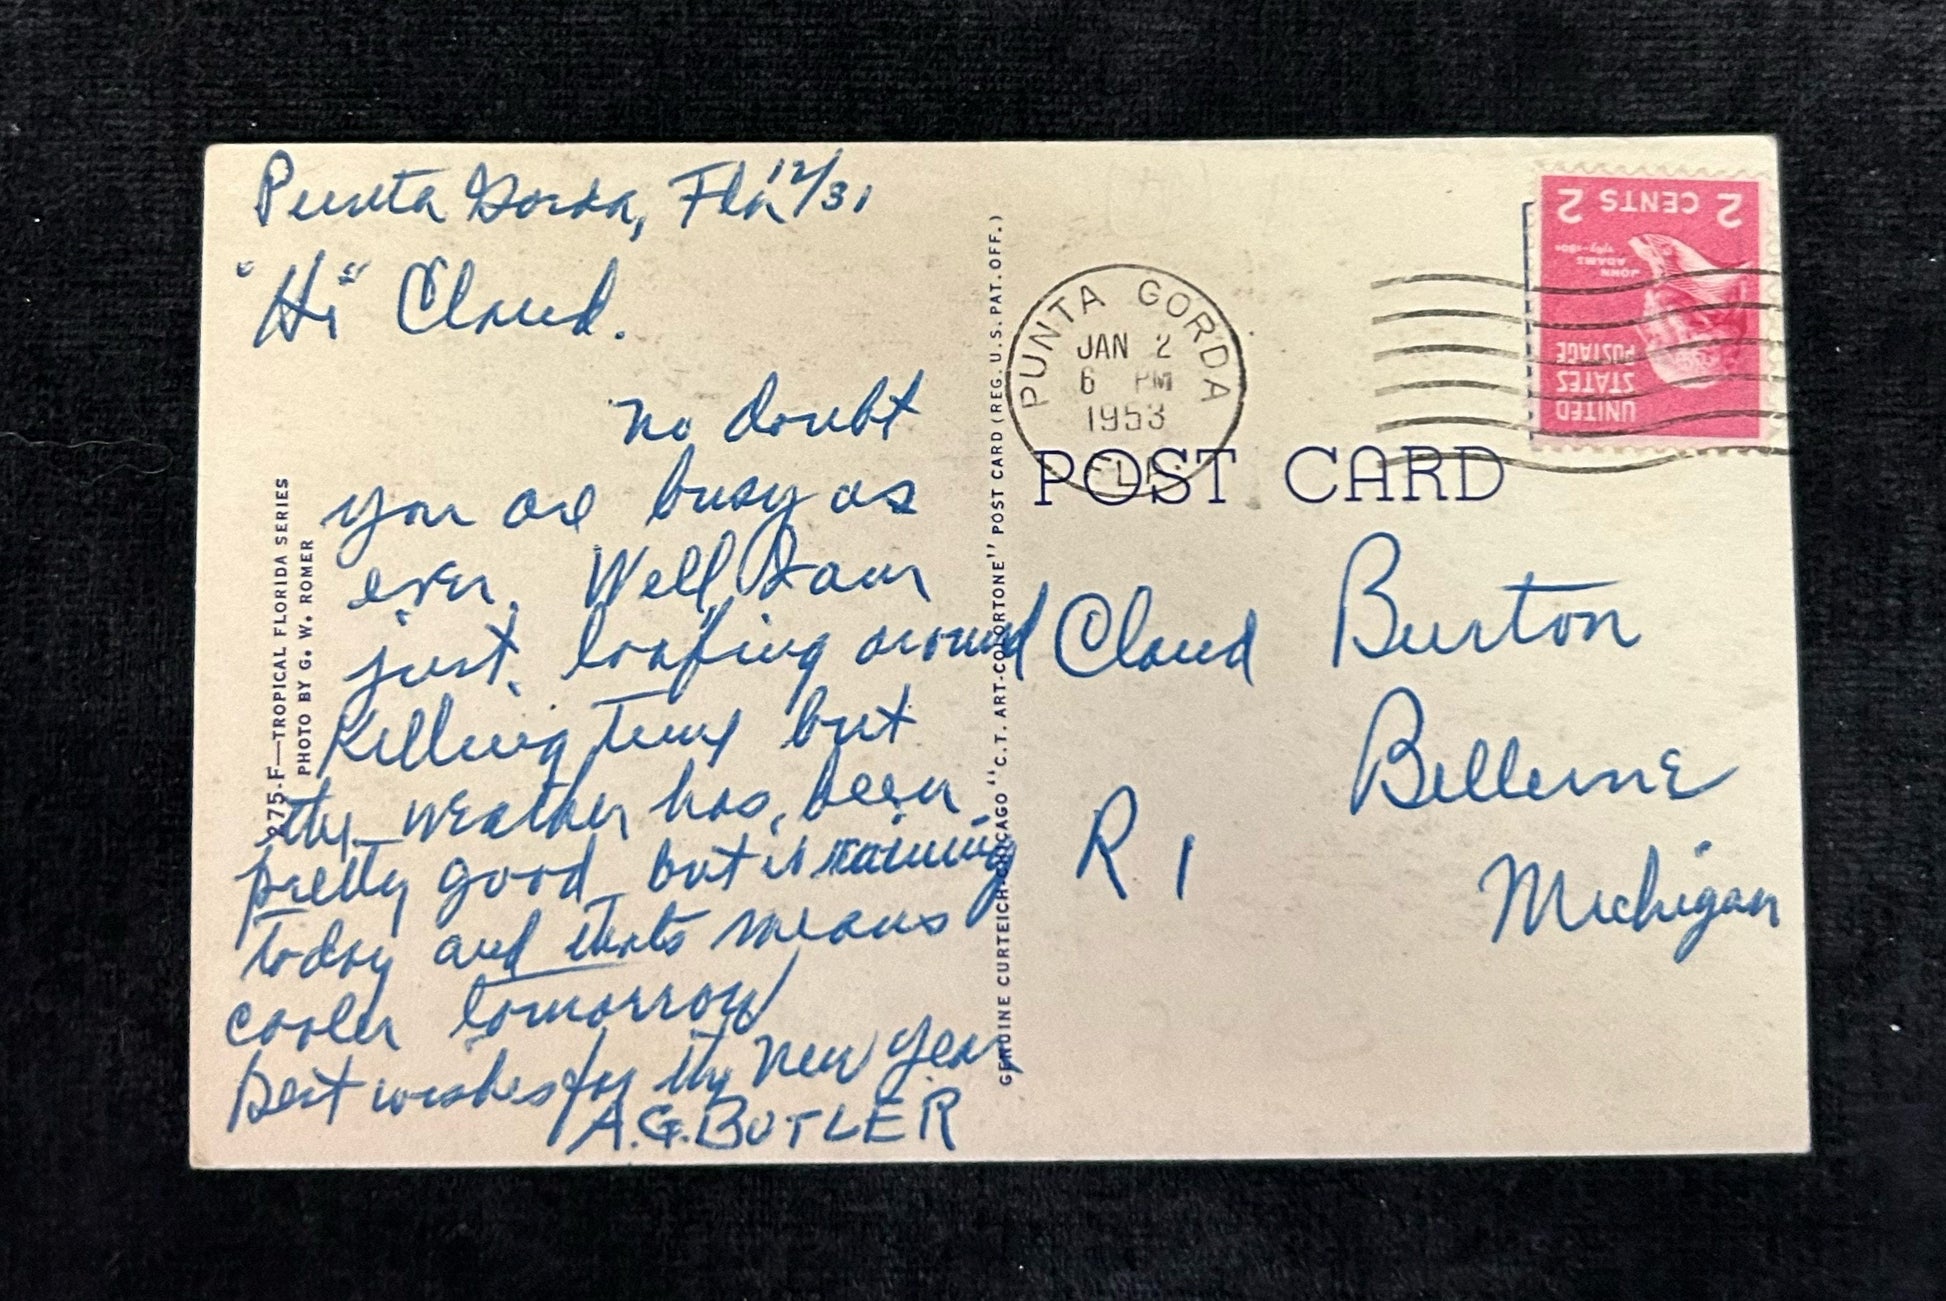 Punta Gorda, Fla 12/31
"Hi" Claud.
No doubt
you are busy as
ever. Well I am
just loafing around
Killing time but
the weather has been
pretty good but is raining
today and that's means
cooler tomorrow
Best wishes for the New Year
A.G. BUTLER
275-F—TROPICAL FLORIDA SERIES
PHOTO BY G. W. ROMER
GENUINE CURTEICH-CHICAGO "C.T. ART-COLORTONE" POST CARD (REG. U.S. PAT. OFF.)
PUNTA GORDA
JAN 2
6 PM
1953
FLA.
2 CENTS 2
JOHN
ADAMS
UNITED
STATES
POSTAGE
POST CARD
Claud Burton
Belleview
R 1
Michigan